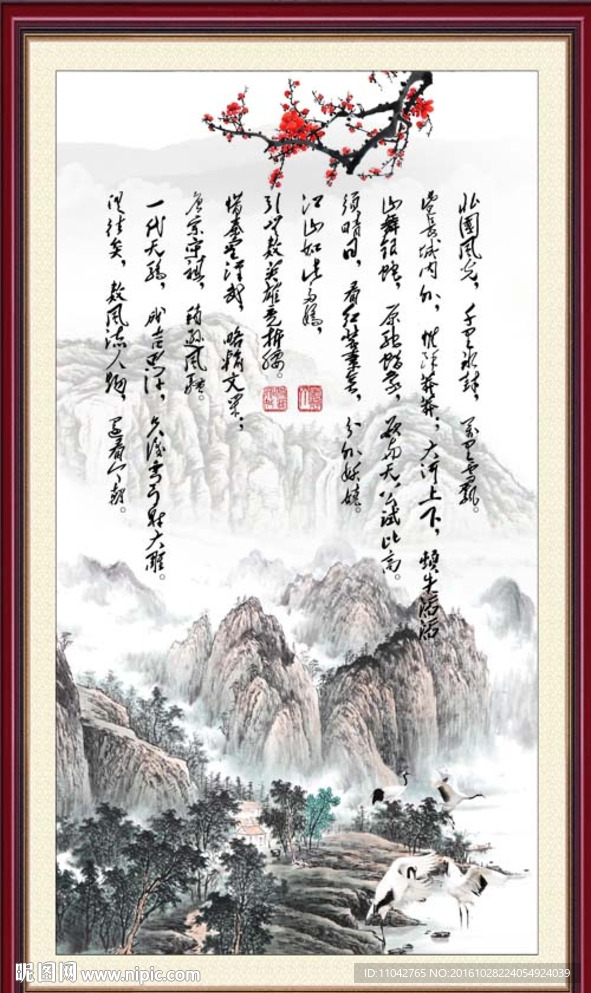 北国风光，千里冰封，万里雪飘。
望长城内外，惟馀莽莽；大河上下，顿失滔滔
山舞银蛇，原驰蜡象，欲与天公试比高。
须晴日，看红装素裹，分外妖娆。
江山如此多娇，
引无数英雄竞折腰。
惜秦皇汉武，略输文采；
唐宗宋祖，稍逊风骚。
一代天骄，成吉思汗，只识弯弓射大雕。
俱往矣，数风流人物，还看今朝。
昵图网 www.nipic.com
ID:11042765 NO:20161028224054924039